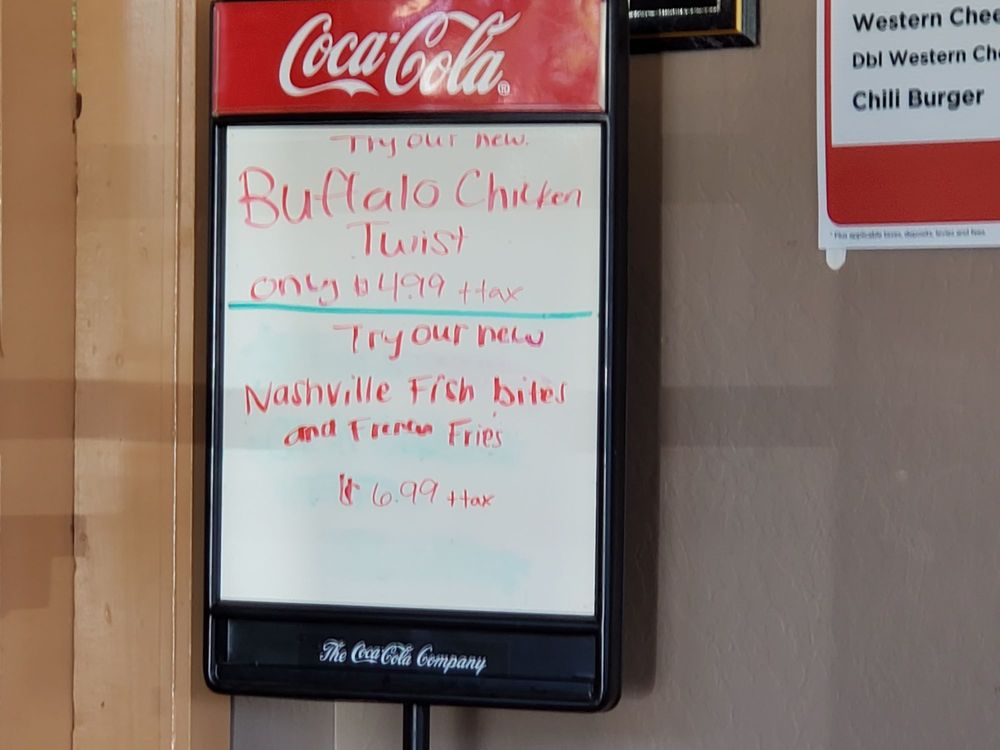 Coca-Cola®
Try our new.
Buffalo Chicken
Twist
only $4.99 +tax
Try our new
Nashville Fish bites
and French Fries
$6.99 +tax
The Coca-Cola Company
Western Chee
Dbl Western Che
Chili Burger